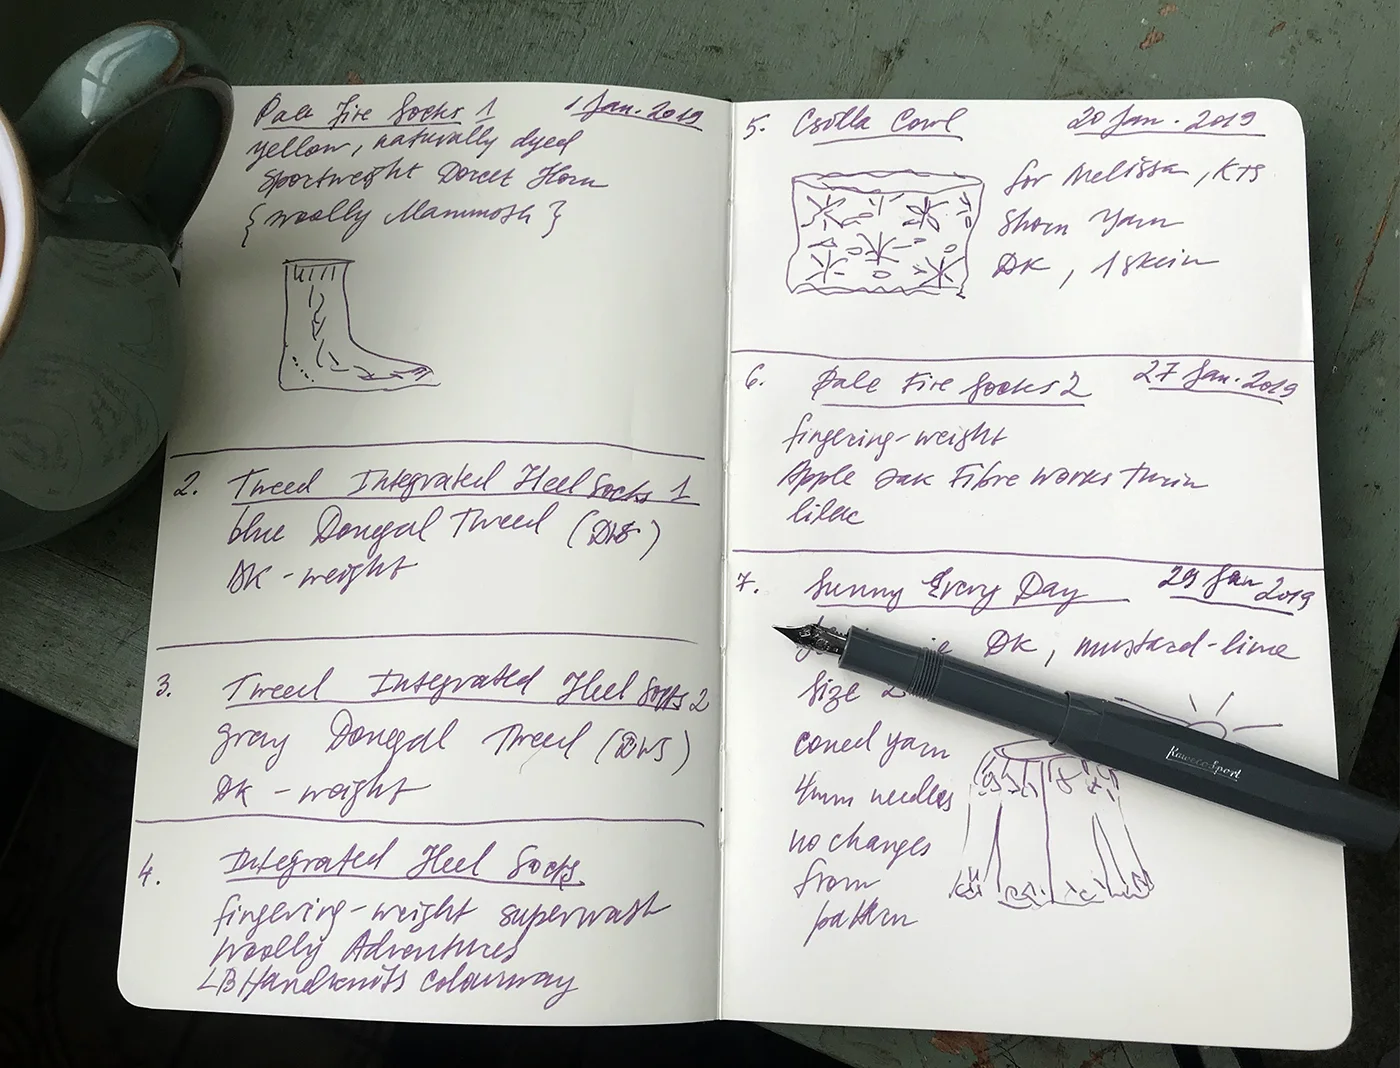 Pale Fire Socks 1 1 Jan. 2019
yellow, naturally dyed
sportweight Dorset Horn
{ Woolly Mammoth }
2. Tweed Integrated Heel Socks 1
blue Donegal Tweed (DWS)
DK - weight
3. Tweed Integrated Heel Socks 2
gray Donegal Tweed (DWS)
DK - weight
4. Integrated Heel Socks
fingering-weight superwash
Woolly Adventures
LB Handknits colourway
5. Csilla Cowl 20 Jan. 2019
for Melissa, KTS
Shorn Yarn
DK, 1 skein
6. Pale Fire Socks 2 27 Jan. 2019
fingering-weight
Apple Oak Fibre Works Twin
lilac
7. Sunny Every Day 29 Jan 2019
DK, mustard-lime
Size 2
coned yarn
4mm needles
no changes
from
pattern
Kaweco Sport